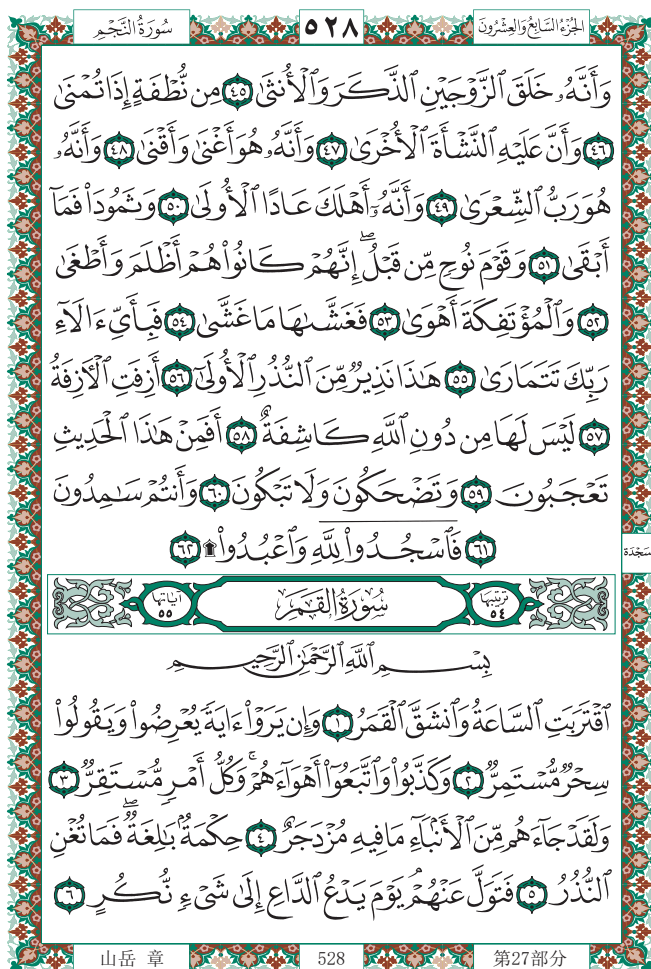 سُورَةُ النَّجْمِ ٥٢٨ الجُزْءُ السَّابِعُ وَالعِشْرُونَ
وَأَنَّهُۥ خَلَقَ ٱلزَّوْجَيْنِ ٱلذَّكَرَ وَٱلْأُنثَىٰ ٤٥ مِن نُّطْفَةٍ إِذَا تُمْنَىٰ
٤٦ وَأَنَّ عَلَيْهِ ٱلنَّشْأَةَ ٱلْأُخْرَىٰ ٤٧ وَأَنَّهُۥ هُوَ أَغْنَىٰ وَأَقْنَىٰ ٤٨ وَأَنَّهُۥ
هُوَ رَبُّ ٱلشِّعْرَىٰ ٤٩ وَأَنَّهُۥٓ أَهْلَكَ عَادًا ٱلْأُولَىٰ ٥٠ وَثَمُودَا۟ فَمَآ
أَبْقَىٰ ٥١ وَقَوْمَ نُوحٍ مِّن قَبْلُ ۖ إِنَّهُمْ كَانُوا۟ هُمْ أَظْلَمَ وَأَطْغَىٰ
٥٢ وَٱلْمُؤْتَفِكَةَ أَهْوَىٰ ٥٣ فَغَشَّىٰهَا مَا غَشَّىٰ ٥٤ فَبِأَىِّ ءَالَآءِ
رَبِّكَ تَتَمَارَىٰ ٥٥ هَٰذَا نَذِيرٌ مِّنَ ٱلنُّذُرِ ٱلْأُولَىٰٓ ٥٦ أَزِفَتِ ٱلْءَازِفَةُ
٥٧ لَيْسَ لَهَا مِن دُونِ ٱللَّهِ كَاشِفَةٌ ٥٨ أَفَمِنْ هَٰذَا ٱلْحَدِيثِ
تَعْجَبُونَ ٥٩ وَتَضْحَكُونَ وَلَا تَبْكُونَ ٦٠ وَأَنتُمْ سَٰمِدُونَ
٦١ فَٱسْجُدُوا۟ لِلَّهِ وَٱعْبُدُوا۟ ۩ ٦٢
سَجْدَة
تَرْتِيبُهَا ٥٤ سُورَةُ القَمَرِ آيَاتُهَا ٥٥
بِسْمِ ٱللَّهِ ٱلرَّحْمَٰنِ ٱلرَّحِيمِ
ٱقْتَرَبَتِ ٱلسَّاعَةُ وَٱنشَقَّ ٱلْقَمَرُ ١ وَإِن يَرَوْا۟ ءَايَةً يُعْرِضُوا۟ وَيَقُولُوا۟
سِحْرٌ مُّسْتَمِرٌّ ٢ وَكَذَّبُوا۟ وَٱتَّبَعُوٓا۟ أَهْوَآءَهُمْ ۚ وَكُلُّ أَمْرٍ مُّسْتَقِرٌّ ٣
وَلَقَدْ جَآءَهُم مِّنَ ٱلْأَنۢبَآءِ مَا فِيهِ مُزْدَجَرٌ ٤ حِكْمَةٌۢ بَٰلِغَةٌ ۖ فَمَا تُغْنِ
ٱلنُّذُرُ ٥ فَتَوَلَّ عَنْهُمْ ۘ يَوْمَ يَدْعُ ٱلدَّاعِ إِلَىٰ شَىْءٍ نُّكُرٍ ٦
山岳 章 528 第27部分